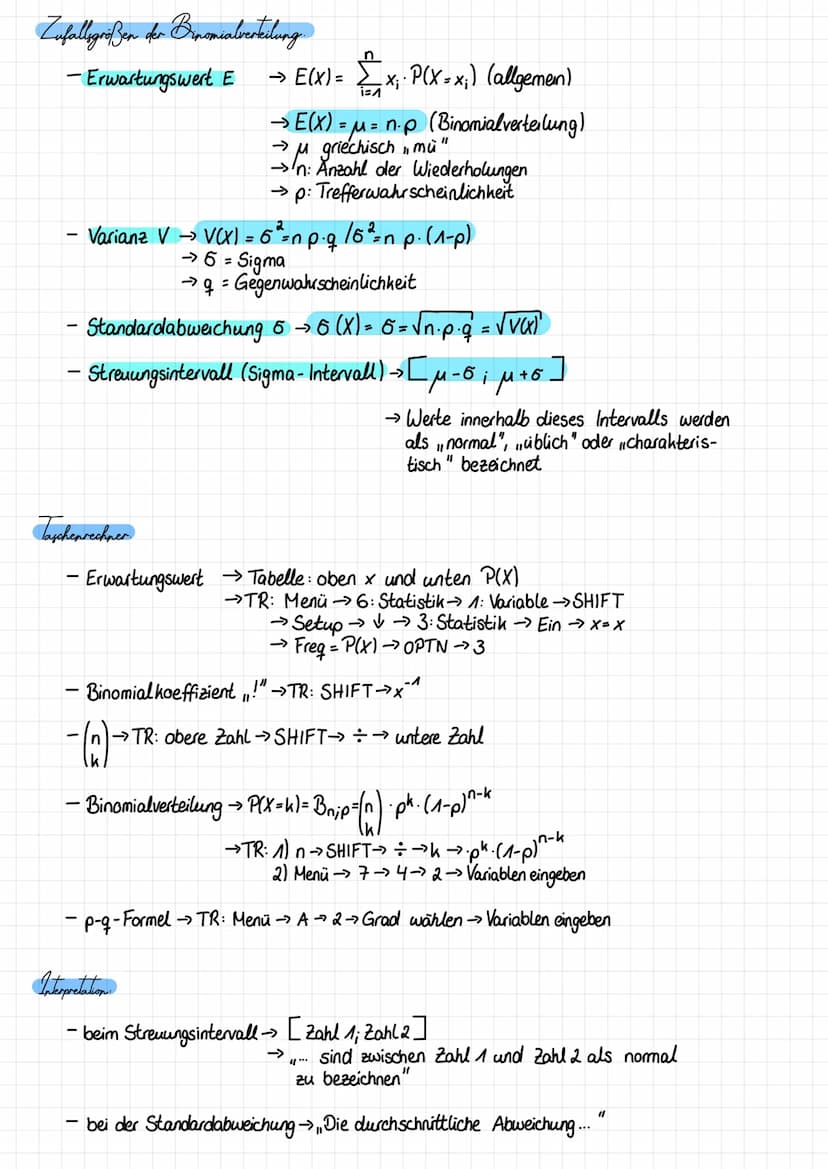 Zufallsgrößen der Binomialverteilung
– Erwartungswert E → E(X) = n∑i=1 xᵢ · P(X=xᵢ) (allgemein)
→ E(X) = μ = n·p (Binomialverteilung)
→ μ griechisch „mü"
→ n: Anzahl der Wiederholungen
→ p: Trefferwahrscheinlichkeit
– Varianz V → V(X) = σ² = n p·q / σ² = n p·(1-p)
→ σ = Sigma
→ q = Gegenwahrscheinlichkeit
– Standardabweichung σ → σ(X) = σ = √(n·p·q) = √V(X)
– Streuungsintervall (Sigma-Intervall) → [μ-σ ; μ+σ]
→ Werte innerhalb dieses Intervalls werden
als „normal", „üblich" oder „charakteris-
tisch" bezeichnet
Taschenrechner
– Erwartungswert → Tabelle: oben x und unten P(X)
→ TR: Menü → 6: Statistik → 1: Variable → SHIFT
→ Setup → ↓ → 3: Statistik → Ein → x=x
→ Freq = P(X) → OPTN → 3
– Binomialkoeffizient „!" → TR: SHIFT → x⁻¹
– (n k) → TR: obere Zahl → SHIFT → ÷ → untere Zahl
– Binomialverteilung → P(X=k) = Bn;p = (n k) · pᵏ · (1-p)ⁿ⁻ᵏ
→ TR: 1) n → SHIFT → ÷ → k → ·pᵏ·(1-p)ⁿ⁻ᵏ
2) Menü → 7 → 4 → 2 → Variablen eingeben
– p-q-Formel → TR: Menü → A → 2 → Grad wählen → Variablen eingeben
Interpretation
– beim Streuungsintervall → [Zahl 1; Zahl 2]
→ „... sind zwischen Zahl 1 und Zahl 2 als normal
zu bezeichnen"
– bei der Standardabweichung → „Die durchschnittliche Abweichung..."